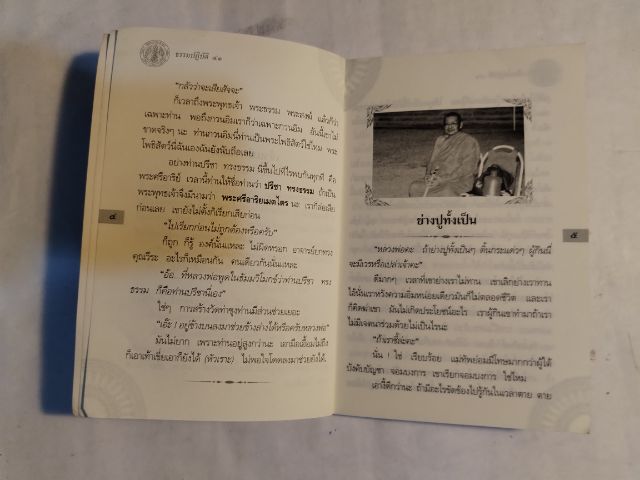 ธรรมปฏิบัติ ๔๑
"กลัวว่าจะเสียสัจจะ"
ก็เวลาถึงพระพุทธเจ้า พระธรรม พระสงฆ์ แล้วก็ว่า
เฉพาะท่าน พอถึงกวนอิมเราก็ว่าเฉพาะกวนอิม อันนี้เขาไม่
ขาดจริงๆ นะ ท่านกวนอิมนี่ท่านเป็นพระโพธิสัตว์ใช่ไหม พระ
โพธิสัตว์นี่ฉันเองฉันยังนับถือเลย
อย่างท่านปรีชา ทรงธรรม นี่ขึ้นไปทีไรพบกันทุกที คือ
พระศรีอาริย์ เวลานี้ท่านให้ชื่อท่านว่า ปรีชา ทรงธรรม ถ้าเป็น
พระพุทธเจ้าจึงมีนามว่า พระศรีอาริยเมตไตร นะ เราก็ล่อเสีย
ก่อนเลย เขายังไม่ตั้งก็เรียกเสียก่อน
"ไปเรียกก่อนไม่ถูกต้องหรือครับ"
ก็ถูก ก็รู้ องค์นั้นแหละ ไม่ผิดหรอก อาจารย์ยกทรง
คุณวีระ อะไรก็เหมือนกัน คนเดียวกันนั่นแหละ
"อ้อ...ที่หลวงพ่อพูดในธัมมวิโมกข์ว่าท่านปรีชา ทรง
ธรรม ก็คือท่านปรีชานี่เอง"
ใช่ๆ การสร้างวัดท่าซุงท่านมีส่วนช่วยเยอะ
"เอ๊ะ! อยู่ข้างบนลงมาช่วยข้างล่างได้หรือครับหลวงพ่อ"
มันไม่ยาก เพราะท่านอยู่สูงกว่านะ เอามือเอื้อมไม่ถึง
ก็เอาเท้าเขี่ยเอาก็ยังได้ (หัวเราะ) ไม่พอใจโดดลงมาช่วยยังได้
๔
ย่างปูทั้งเป็น
๕
"หลวงพ่อคะ ถ้าย่างปูทั้งเป็นๆ ดิ้นกระแด่วๆ ผู้กินนี่
จะมีเวรหรือเปล่าเจ้าคะ"
ดีมากๆ เวลาที่เขาย่างเราไม่ทาน เขาเลิกย่างเราทาน
ไอ้นั่นเราหวังความอิ่มหน่อยเดียวมันก็ไม่ตลอดชีวิต และเรา
ก็คิดฆ่าเขา มันไม่เกิดประโยชน์อะไร เราผู้กินเขาทำมาถ้าเรา
ไม่มีเจตนาร่วมด้วยไม่เป็นไรนะ
"ถ้าเราชี้ล่ะคะ"
นั่น ! ใช่ เรียบร้อย แม่ทัพย่อมมีโทษมากกว่าผู้ใต้
บังคับบัญชา จอมบงการ เขาเรียกจอมบงการ ใช่ไหม
เอางี้ดีกว่านะ ถ้ามีอะไรขัดข้องไปรู้กันในเวลาตาย ตาย